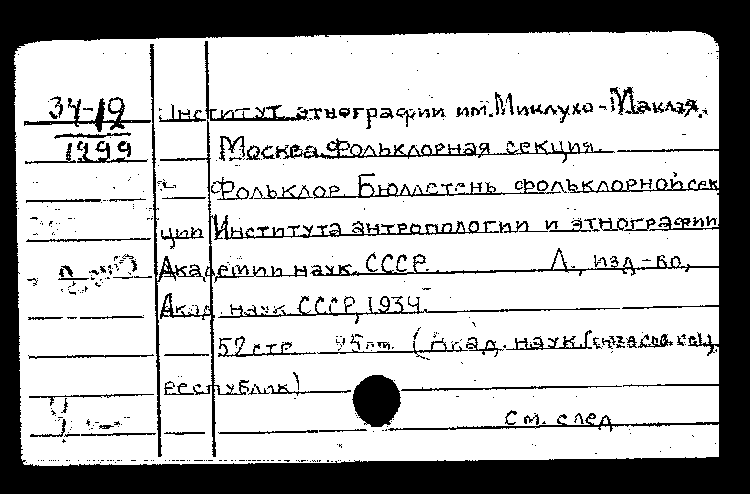 34-12
1299
Институт этнографии им. Миклухо-Маклая.
Москва. Фольклорная секция.
Фольклор. Бюллетень фольклорной сек
ции Института антропологии и этнографии
Академии наук СССР. Л., изд-во,
Акад. наук СССР, 1934.
52 стр. (Акад. наук
республик)
см. след